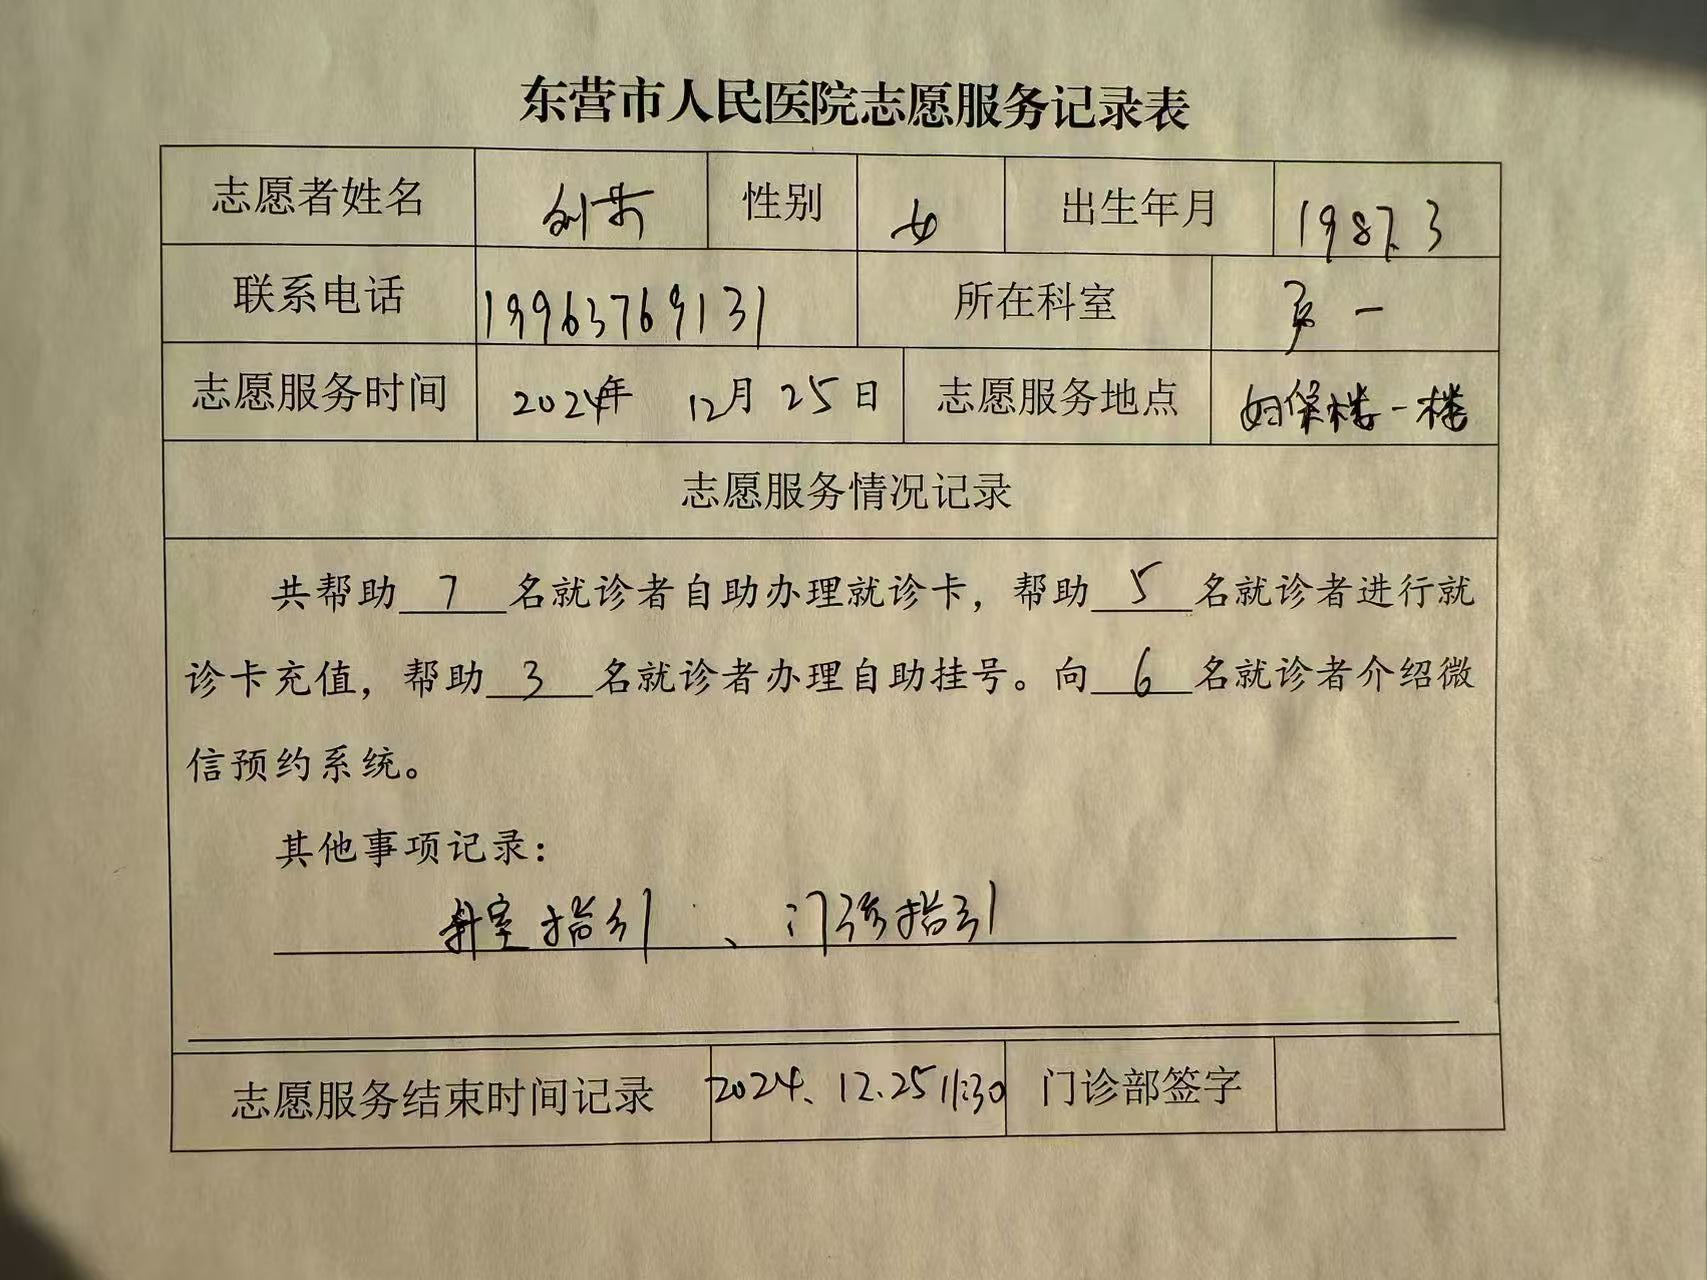 东营市人民医院志愿服务记录表
志愿者姓名 性别 女 出生年月 1987.3
联系电话 19963769131 所在科室 产一
志愿服务时间 2024年 12月 25日 志愿服务地点 妇保楼一楼
志愿服务情况记录
共帮助 7 名就诊者自助办理就诊卡，帮助 5 名就诊者进行就
诊卡充值，帮助 3 名就诊者办理自助挂号。向 6 名就诊者介绍微
信预约系统。
其他事项记录：
科室指引、门诊指引
志愿服务结束时间记录 2024.12.25 11:30 门诊部签字